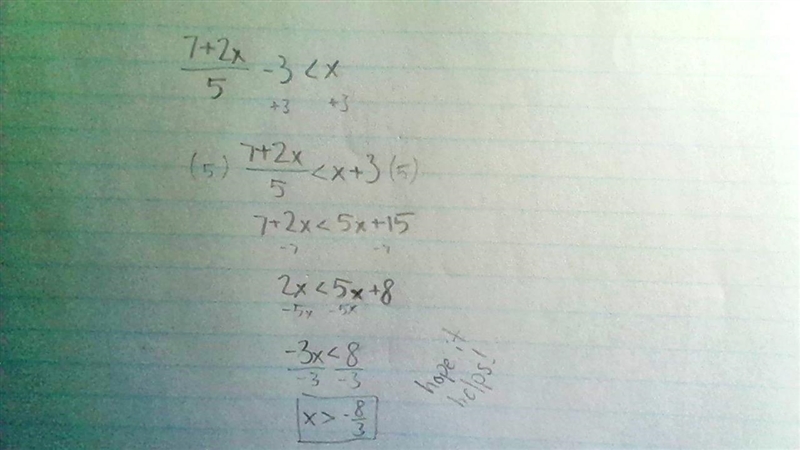 7+2x/5 -3 < x
+3 +3
(5) 7+2x/5 < x+3 (5)
7+2x < 5x+15
-7 -7
2x < 5x+8
-5x -5x
-3x < 8
-3 -3
x > -8/3
hope it
helps!